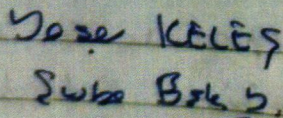 Yaşar KELEŞ
Şube Bşk. Y.